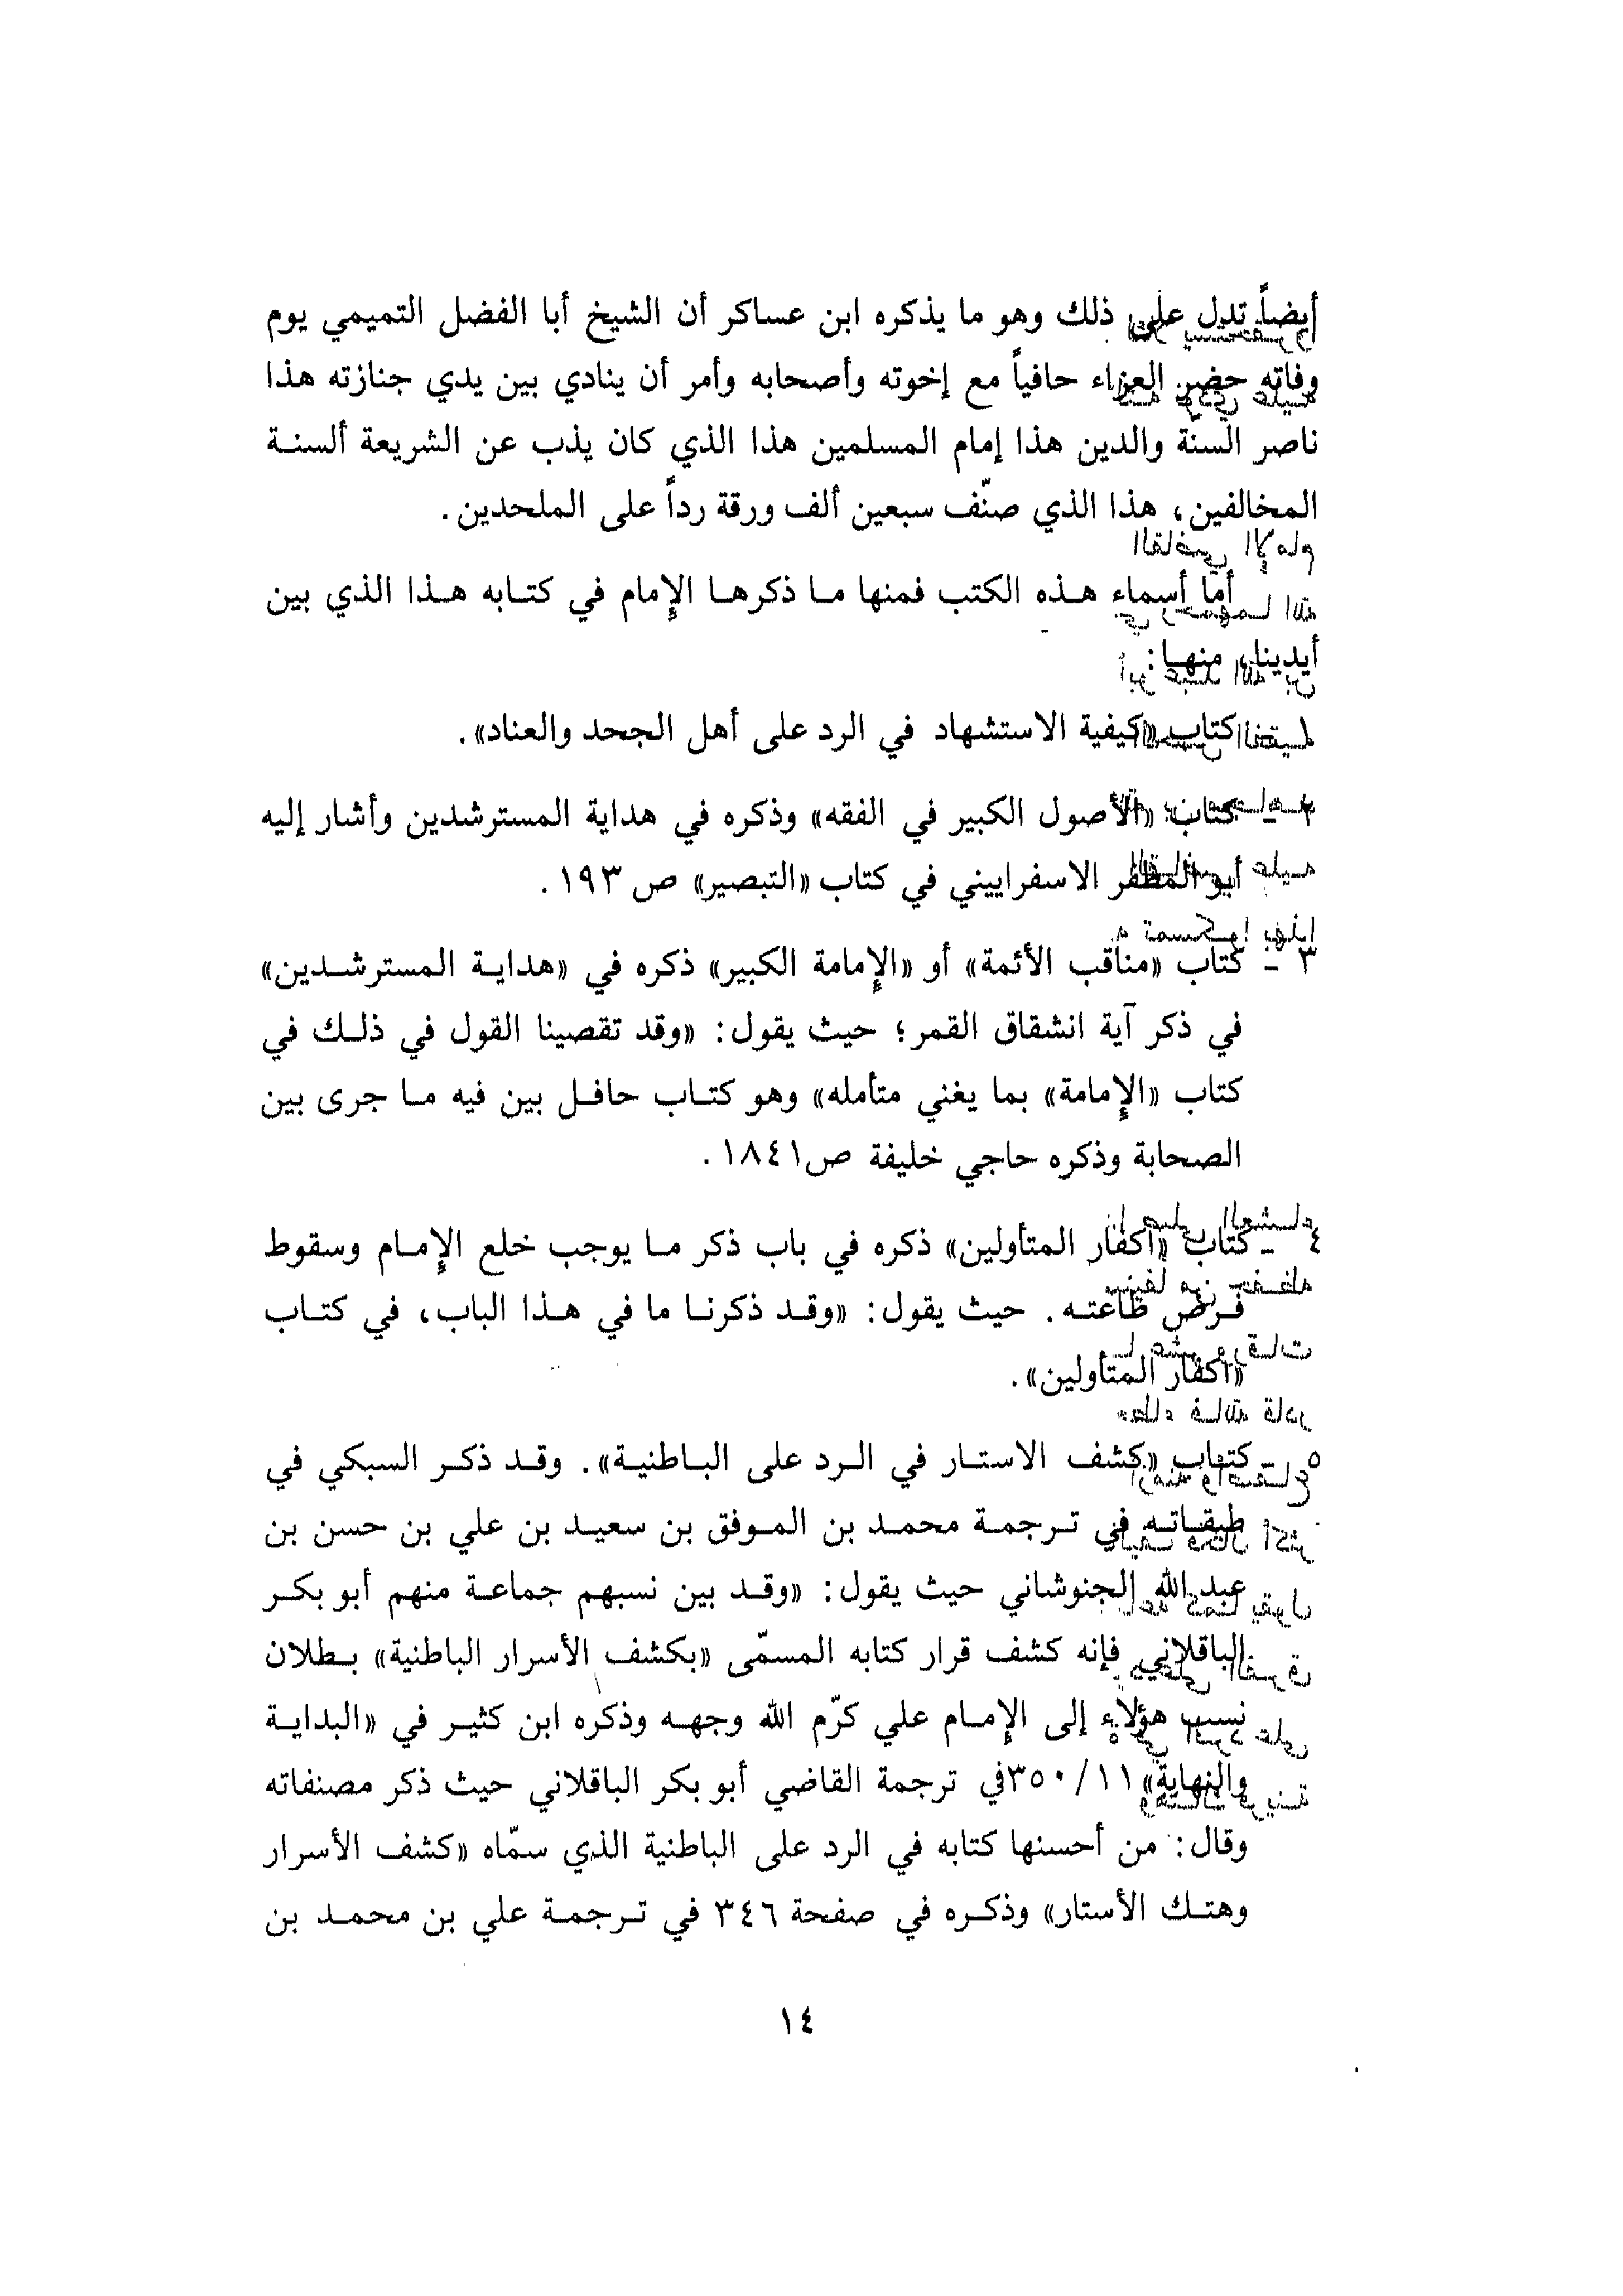 أيضاً تدل على ذلك وهو ما يذكره ابن عساكر أن الشيخ أبا الفضل التميمي يوم
وفاته حضر العزاء حافياً مع إخوته وأصحابه وأمر أن ينادي بين يدي جنازته هذا
ناصر السنّة والدين هذا إمام المسلمين هذا الذي كان يذب عن الشريعة ألسنة
المخالفين، هذا الذي صنّف سبعين ألف ورقة رداً على الملحدين.
أما أسماء هذه الكتب فمنها ما ذكرها الإمام في كتابه هذا الذي بين
أيدينا، منها:
١ - كتاب «كيفية الاستشهاد في الرد على أهل الجحد والعناد».
٢ - كتاب «الأصول الكبير في الفقه» وذكره في هداية المسترشدين وأشار إليه
أبو المظفر الاسفراييني في كتاب «التبصير» ص ١٩٣.
٣ - كتاب «مناقب الأئمة» أو «الإمامة الكبير» ذكره في «هداية المسترشدين»
في ذكر آية انشقاق القمر؛ حيث يقول: «وقد تقصينا القول في ذلك في
كتاب «الإمامة» بما يغني متأمله» وهو كتاب حافل بين فيه ما جرى بين
الصحابة وذكره حاجي خليفة ص١٨٤١.
٤ - كتاب «أكفار المتأولين» ذكره في باب ذكر ما يوجب خلع الإمام وسقوط
فرض طاعته. حيث يقول: «وقد ذكرنا ما في هذا الباب، في كتاب
«اكفار المتأولين».
٥ - كتاب «كشف الاستار في الرد على الباطنية». وقد ذكر السبكي في
طبقاته في ترجمة محمد بن الموفق بن سعيد بن علي بن حسن بن
عبد الله الجنوشاني حيث يقول: «وقد بين نسبهم جماعة منهم أبو بكر
الباقلاني فإنه كشف قرار كتابه المسمّى «بكشف الأسرار الباطنية» بطلان
نسب هؤلاء إلى الإمام علي كرّم الله وجهه وذكره ابن كثير في «البداية
والنهاية» ٣٥٠/١١في ترجمة القاضي أبو بكر الباقلاني حيث ذكر مصنفاته
وقال: من أحسنها كتابه في الرد على الباطنية الذي سمّاه «كشف الأسرار
وهتك الأستار» وذكره في صفحة ٣٤٦ في ترجمة علي بن محمد بن
١٤